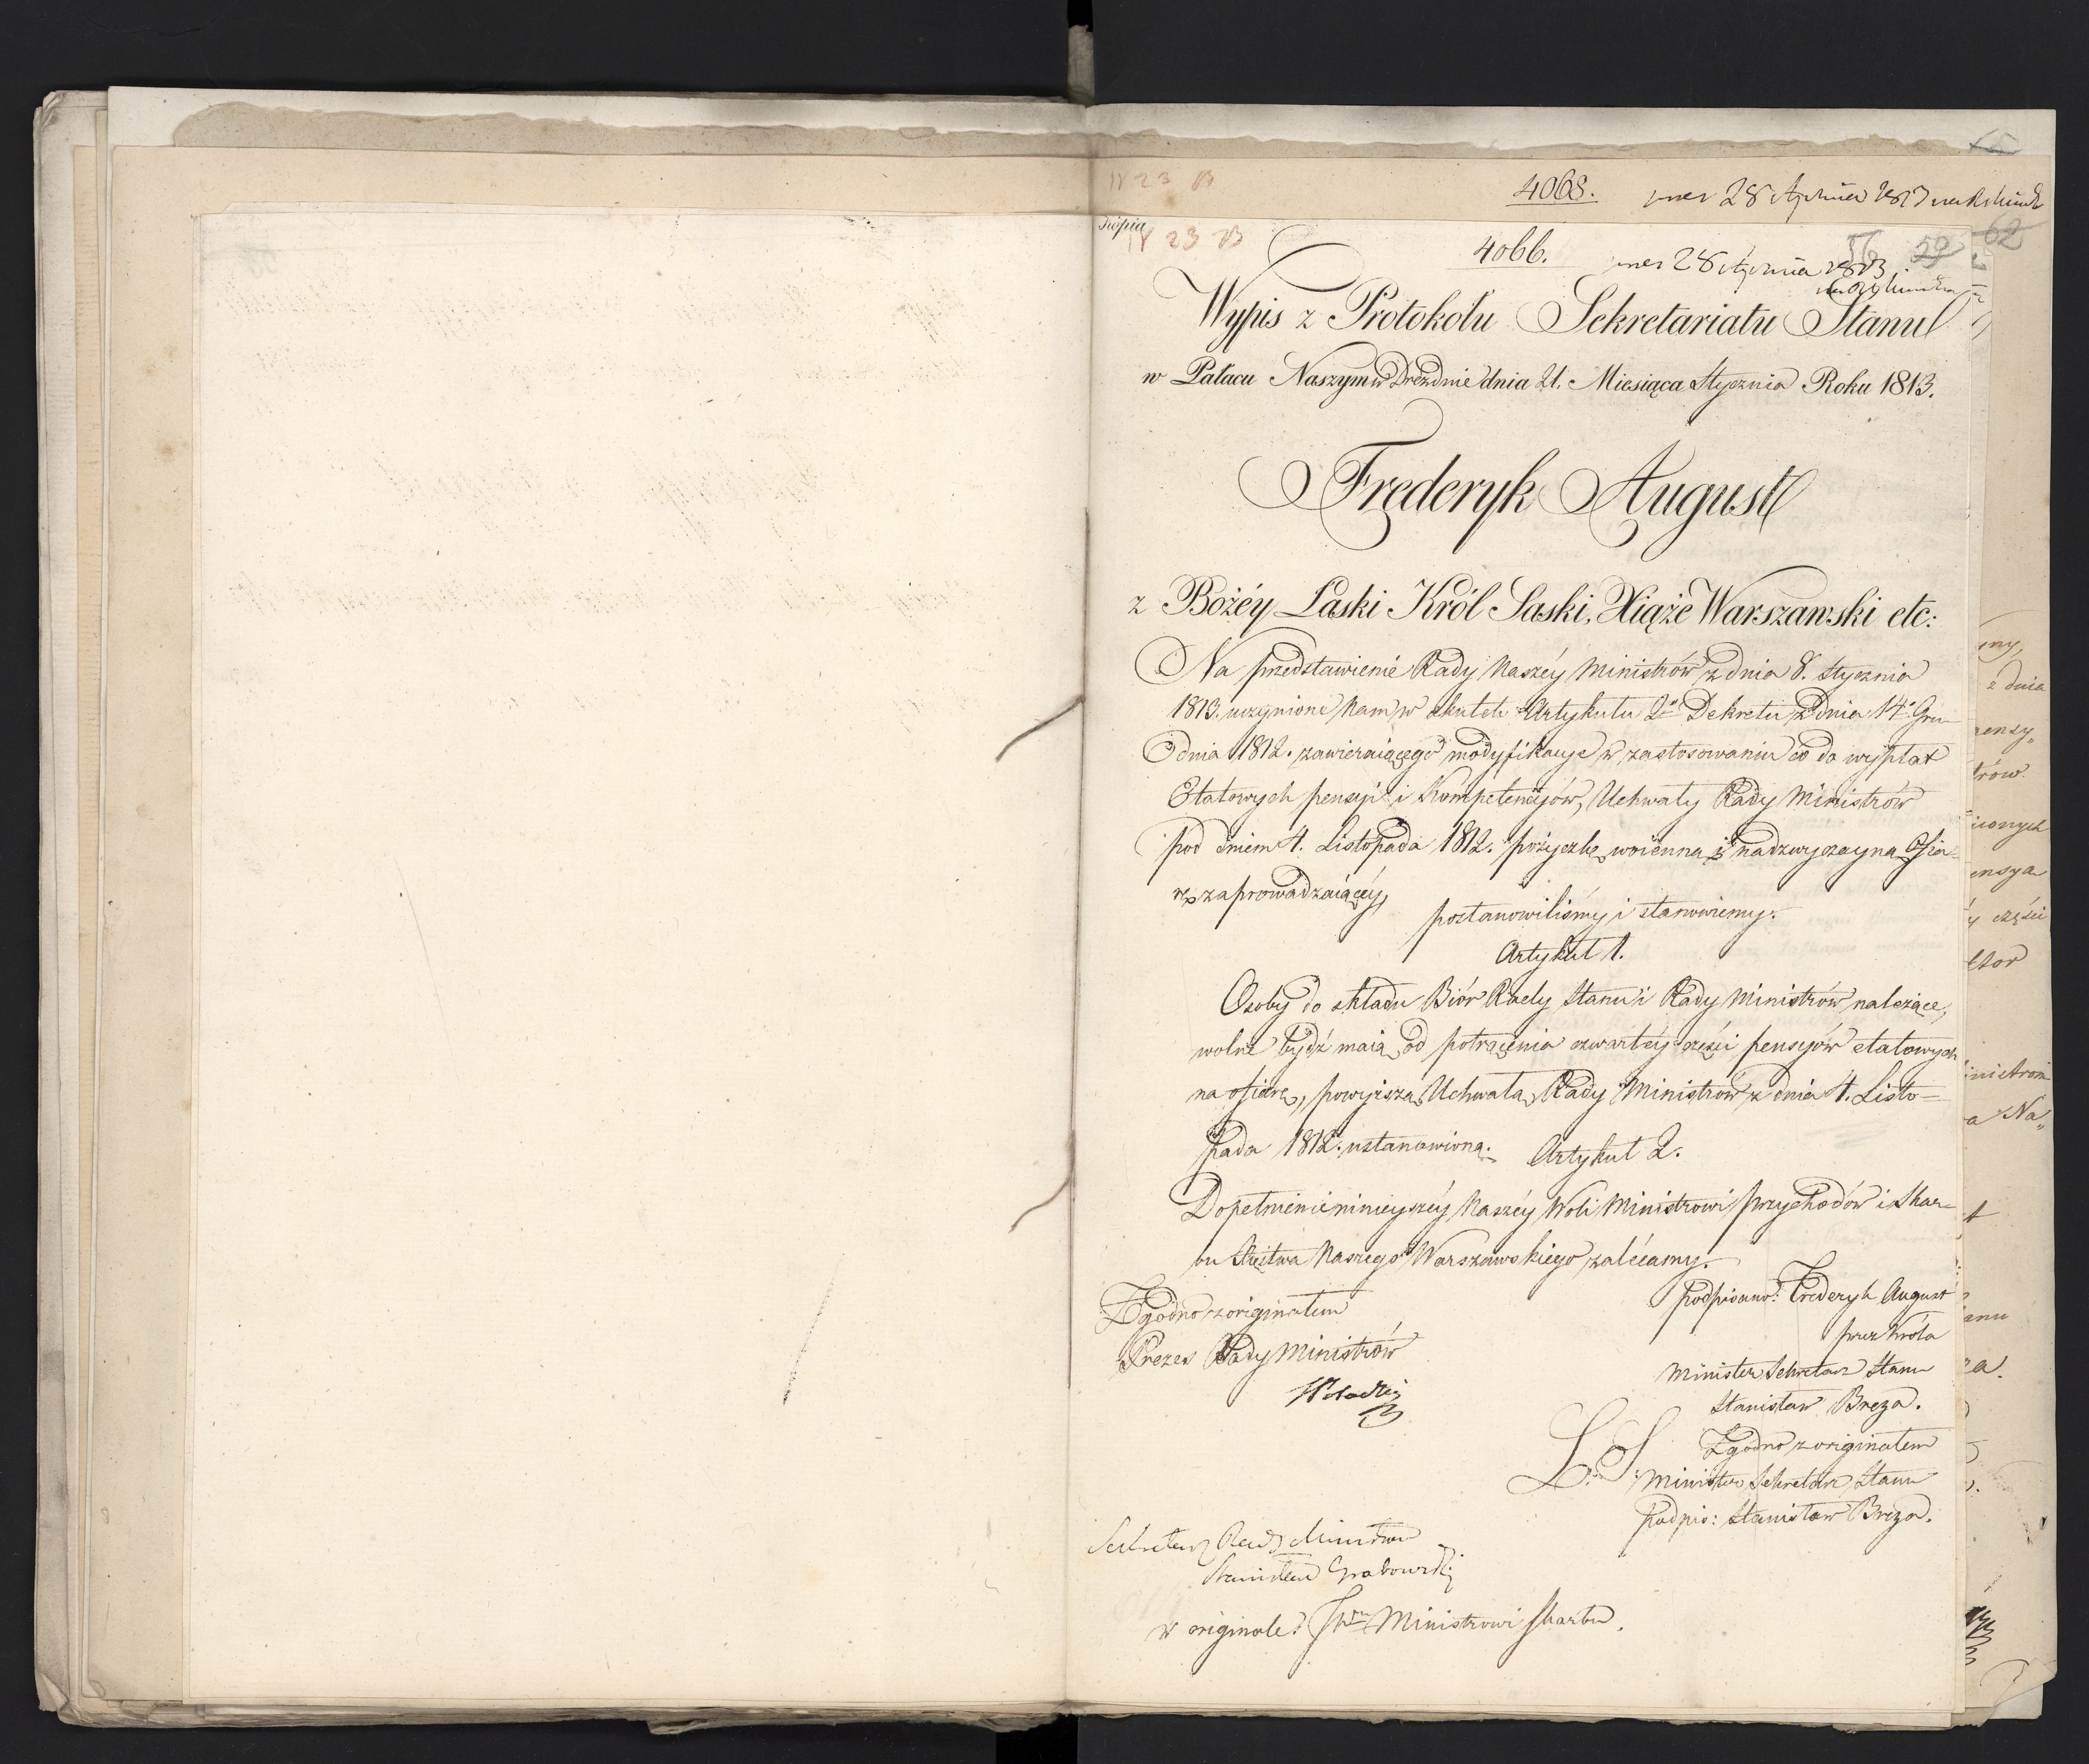 4068.
Kópia
4066.
56 59 62
Wypis z Protokołu Sekretariatu Stanu
w Pałacu Naszym w Dreźnie dnia 21. Miesiąca Stycznia Roku 1813.
Frederyk August
z Bożéy Łaski Król Saski, Xiąże Warszawski etc:
Na przedstawienie Rady Naszéy Ministrów z dnia 8. Stycznia
1813. uczynione Nam w skutek Artykułu 2o Dekretu z dnia 14o Gru-
dnia 1812. zawieraiącego modyfikacye w zastosowaniu co do wypłat
Etatowych pensyi i Kompetencyów, Uchwały Rady Ministrów
pod dniem 4. Listopada 1812. pożyczkę woienną i nadzwyczayną Ofia-
rę zaprowadzaiącéy,
postanowiliśmy i stanowiemy.
Artykuł 1.
Osoby do składu Biór Rady Stanu i Rady Ministrów należące,
wolne bydź maią od potrącenia czwartéy części pensyów etatowych
na ofiarę, powyższą Uchwałą Rady Ministrów z dnia 4. Listo-
pada 1812. ustanowioną.
Artykuł 2.
Dopełnienie ninieyszéy Naszéy Woli Ministrowi przychodów i Skar-
bu Xięstwa Naszego Warszawskiego zalécamy.
podpisano: Frederyk August
przez Króla
Minister Sekretarz Stanu
Stanisław Breza.
Zgodno z originałem
Prezes Rady Ministrów
L. S.
Zgodno z originałem
Minister Sekretarz Stanu
podpis: Stanisław Breza.
Sekretarz Rady Ministrów
Stanisław Grabowski
w originale: JWmu Ministrowi Skarbu.